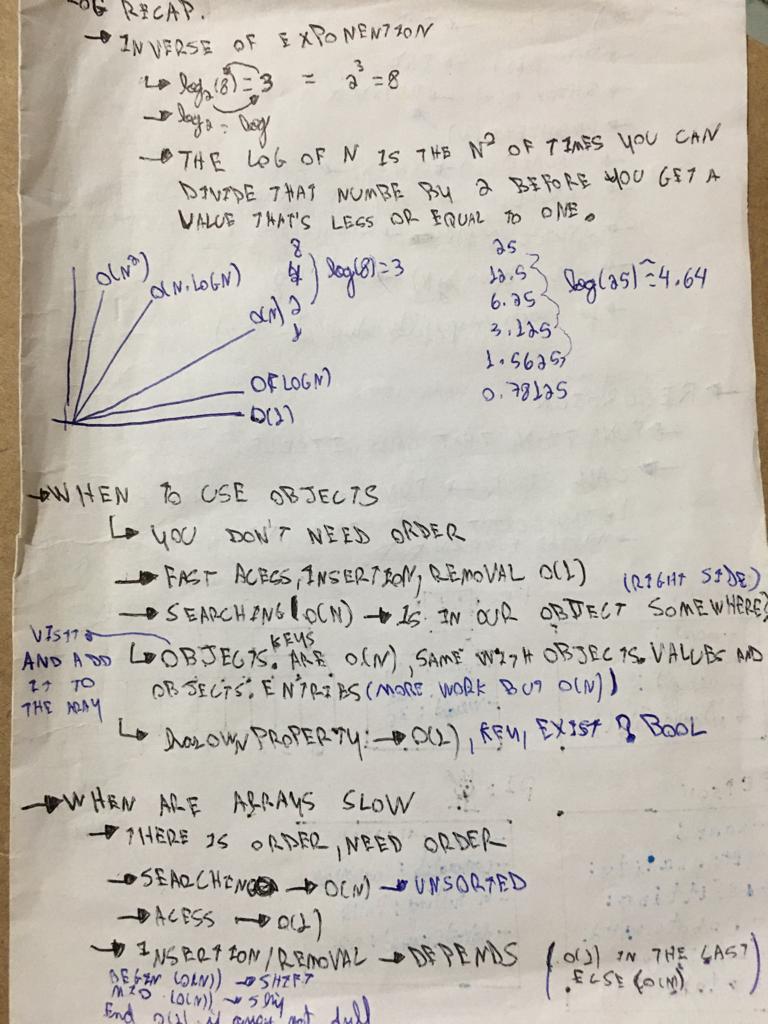 LOG RECAP.
→ INVERSE OF EXPONENTION
↳ log₂(8) = 3 = 2³ = 8
→ log₂ = log
→ THE LOG OF N IS THE Nº OF TIMES YOU CAN
DIVIDE THAT NUMBE BY 2 BEFORE YOU GET A
VALUE THAT'S LESS OR EQUAL TO ONE.
O(N²)
O(N.LOGN)
O(N)
O(LOGN)
O(1)
8
4
2
1
log(8)=3
25
12.5
6.25
3.125
1.5625
0.78125
log(25) ≈ 4.64
→ WHEN TO USE OBJECTS
↳ YOU DON'T NEED ORDER
→ FAST ACESS, INSERTION, REMOVAL O(1) (RIGHT SIDE)
→ SEARCHING O(N) → IS IN OUR OBJECT SOMEWHERE?
VISIT
AND ADD
IT TO
THE ARAY
↳ OBJECTS.KEYS ARE O(N), SAME WITH OBJECTS.VALUES AND
OBJECTS.ENTRIES (MORE WORK BUT O(N))
↳ hasOWNPROPERTY: → O(1), KEY, EXIST? BOOL
→ WHEN ARE ARRAYS SLOW
→ THERE IS ORDER, NEED ORDER
→ SEARCHING → O(N) → UNSORTED
→ ACESS → O(1)
→ INSERTION/REMOVAL → DEPENDS (O(1) IN THE LAST
ELSE (O(N))
BEGIN (O(N)) → SHIFT
MID (O(N)) →
End O(1) if array not full